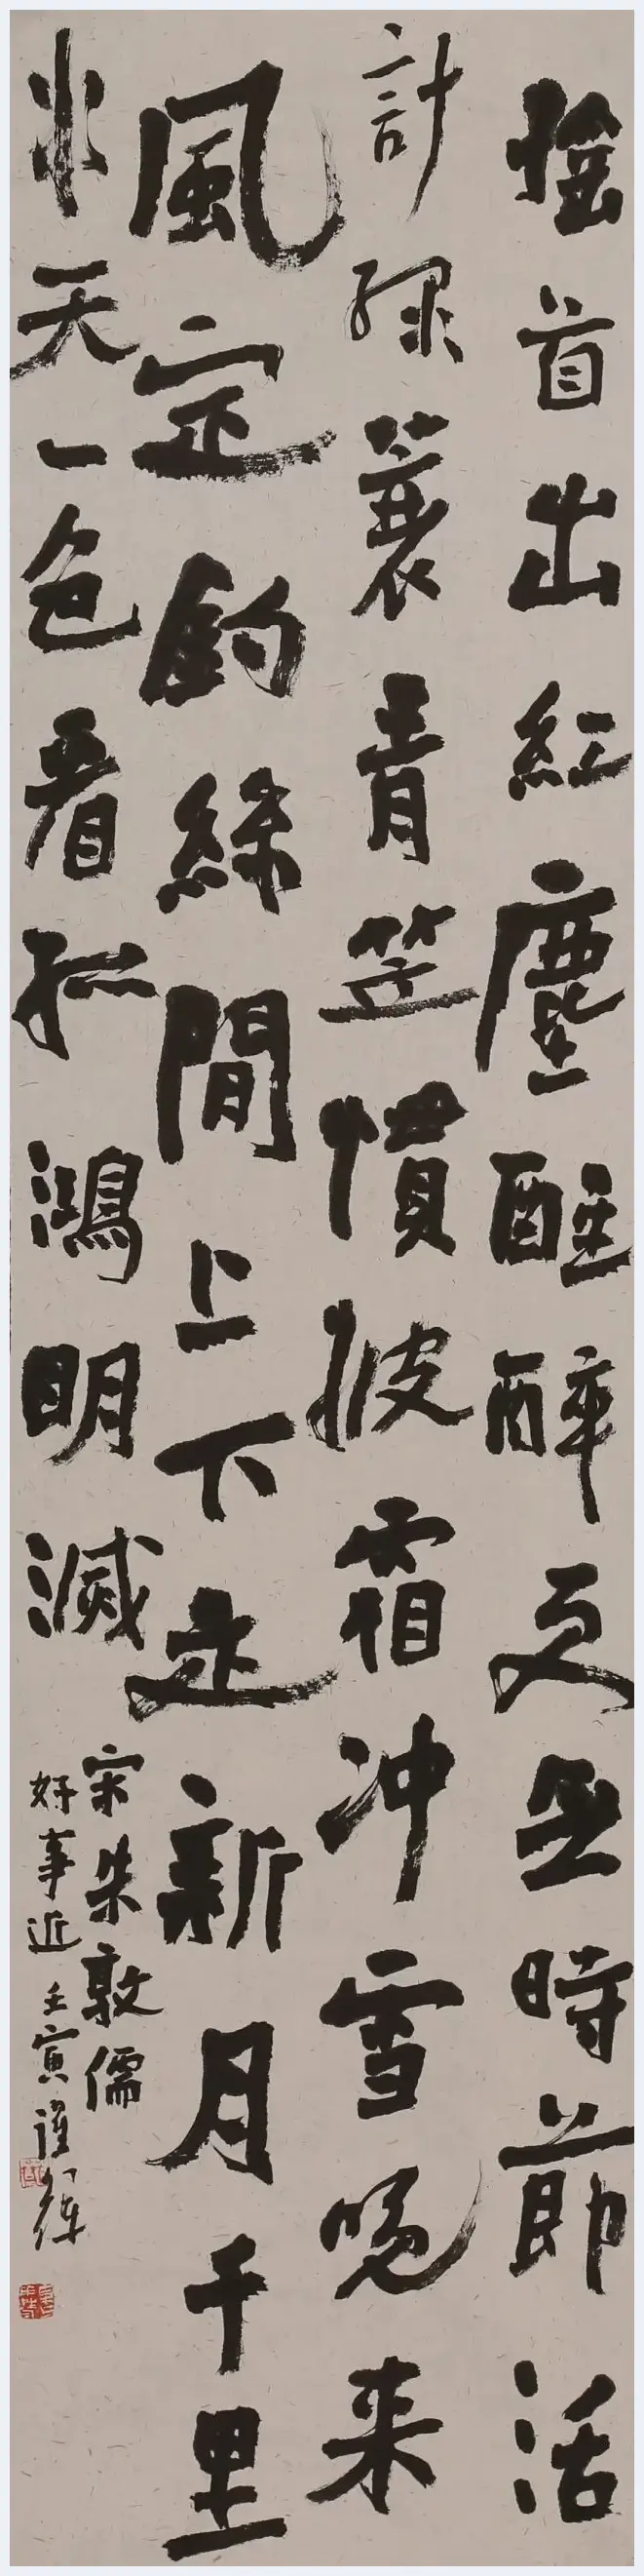 搖首出紅塵醒醉更無時節活
計綠蓑青笠慣披霜冲雪晚来
風定釣絲閒上下是新月千里
水天一色看孤鴻明滅
宋朱敦儒
好事近壬寅